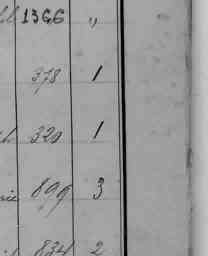 1366 "
378 1
320 1
899 3
834 2